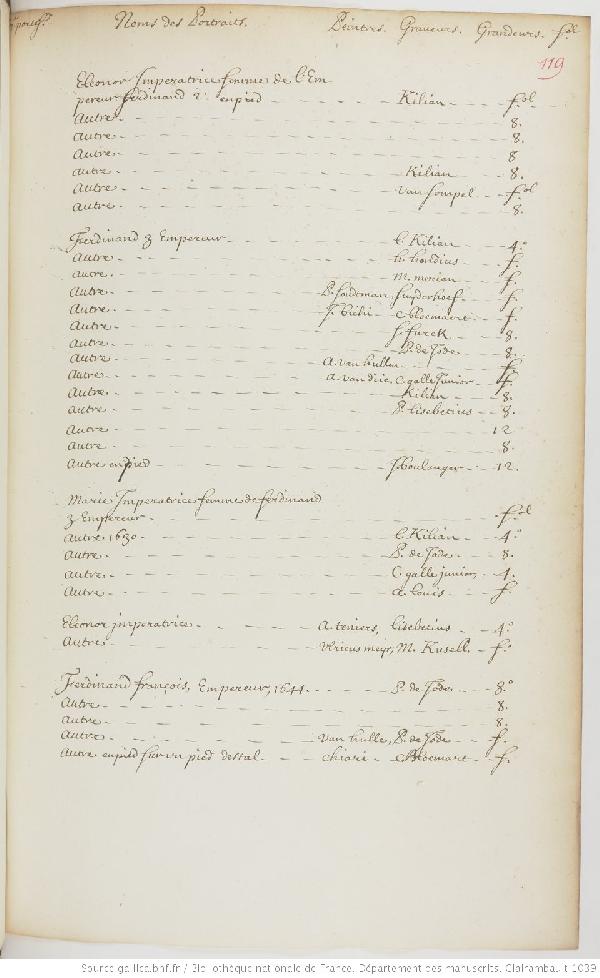 portef. Noms des Portraits. Peintres. Graveurs. Grandeurs. fol
119
Eleonor Imperatrice femme de l'Em
pereur ferdinand 2. en pied Kilian fol
Autre 8.
Autre 8.
Autre 8
Autre Kilian 8.
Autre Van Sompel fol
Autre 8.
Ferdinand 3 Empereur L. Kilian 4°
Autre h. hondius f.
Autre M. merian f.
Autre P. Soutman Suyderhoef f.
Autre Bloemaert f.
Autre f. furck 8.
Autre P. de Jode 8.
Autre A. Van hulle f.
Autre A. Van dic, C. galle Junior 4.
Autre Kilian 8.
Autre P. Lisebetius 8.
Autre 12
Autre 8.
Autre en pied J. Boulanger 12.
Marie Imperatrice femme de ferdinand
3 Empereur fol
Autre 1630 L. Kilian 4°
Autre P. de Jode 8.
Autre C. galle junior 4.
Autre A. Louis f.
Eleonor jmperatrice A. teniers, Lisebetius 4°
Autre Vlricus meyr, M. Kusell f.
Ferdinand françois, Empereur, 1644. P. de Jode 8°
Autre 8.
Autre 8.
Autre Van hulle, P. de Jode f.
Autre en pied sur un pied destal chiari Bloemart f.
Source gallica.bnf.fr / Bibliothèque nationale de France. Département des manuscrits. Clairambault 1039